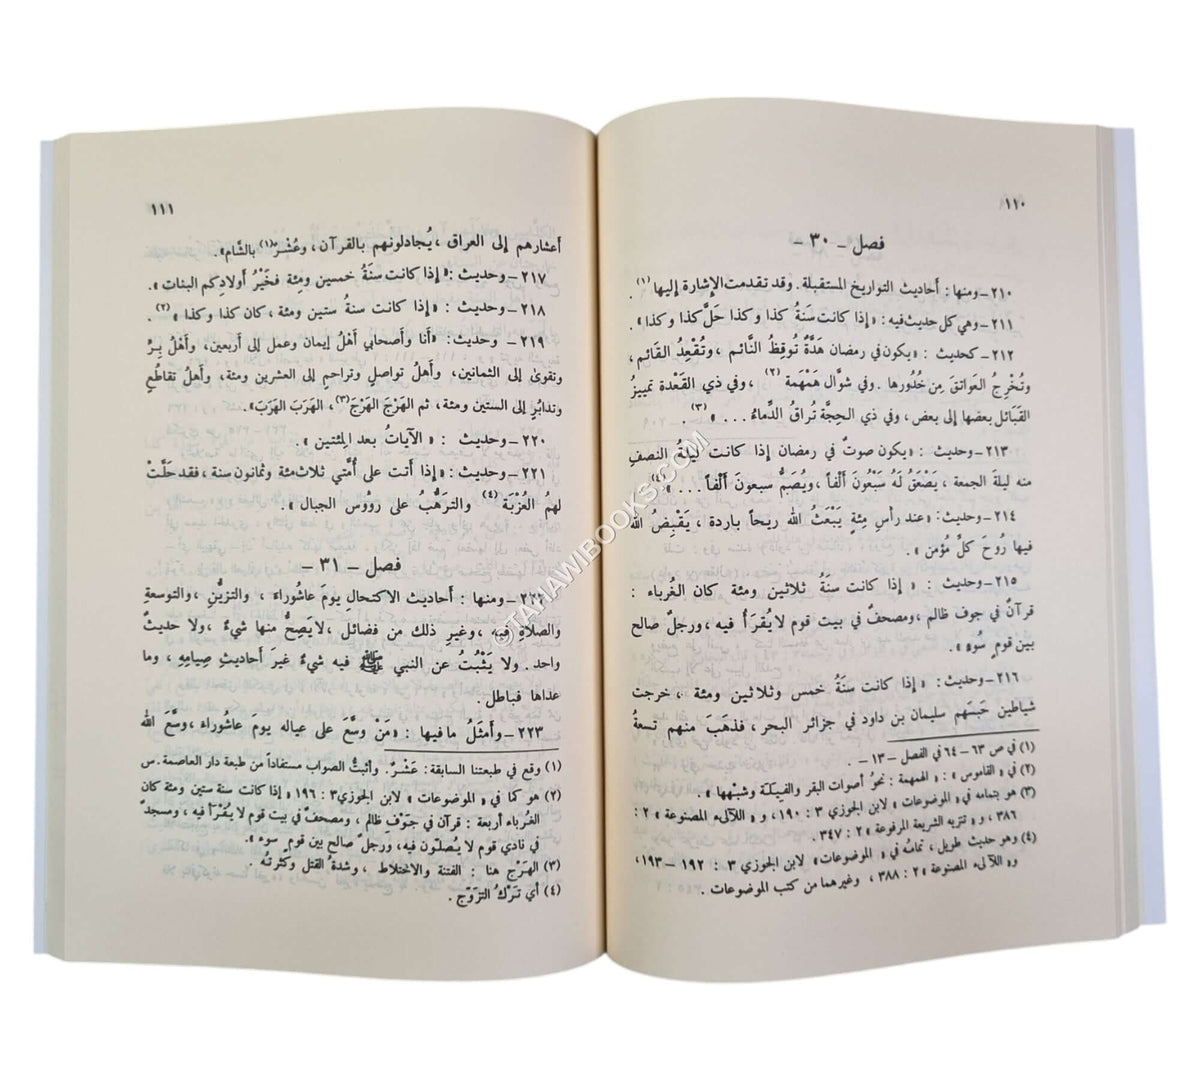 ١١٠
فصل ـ ٣٠ ـ
٢١٠ـ ومنها: أحاديث التواريخ المستقبلة. وقد تقدمت الإشارة إليها (١) .
٢١١ـ وهي كل حديث فيه: «إذا كانت سَنَةُ كذا وكذا حَلَّ كذا وكذا» .
٢١٢ـ كحديث : «يكون في رمضان هَدَّةٌ تُوقِظُ النَّائم ، وتُقْعِدُ القَائم ،
وتُخْرِجُ العَواتقَ مِن خُدُورها . وفي شوَّال هَمْهَمة (٢) ، وفي ذي القَعْدة تمييزُ
القَبَائل بعضها إلى بعض، وفي ذي الحِجَّة تُراقُ الدِّماءُ ... » (٣) .
٢١٣ـ وحديث: «يكون صوتٌ في رمضان إذا كانت ليلةُ النصفِ
منه ليلةَ الجمعة ، يَصْعَقُ لَهُ سَبْعُونَ أَلْفاً ، ويُصَمُّ سبعونَ أَلْفاً ... » (٤)
٢١٤ـ وحديث: «عند رأسِ مِئةٍ يَبْعَثُ الله ريحاً باردة ، يَقْبِضُ الله
فيها رُوحَ كلِّ مُؤمن» .
٢١٥ـ وحديث : « إذا كانت سَنَةُ ثلاثين ومئة كان الغُرباء :
قرآنٌ في جوف ظالم ، ومصحفٌ في بيت قوم لا يُقرَأُ فيه ، ورجلٌ صالح
بين قومٍ سُوء» .
٢١٦ـ وحديث: « إذا كانت سَنَةُ خمس وثلاثين ومئة ، خرجت
شياطين حَبَسَهم سليمان بن داود في جزائر البحر، فذهَبَ منهم تسعةُ
(١) في ص ٦٣ ـ ٦٤ في الفصل ـ ١٣ ـ .
(٢) في «القاموس» : الهمهمة: نحوُ أصوات البقر والفِيَلة وشبهها» .
(٣) هو بتمامه في «الموضوعات» لابن الجوزي ٣ : ١٩٠، و «اللآلىء المصنوعة» ٢ :
٣٨٦ ، و « تنزيه الشريعة المرفوعة » ٢ : ٣٤٧ .
(٤) وهو حديث طويل ، تمامُه في «الموضوعات» لابن الجوزي ٣ : ١٩٢ ـ ١٩٣ ،
و «اللآلىء المصنوعة» ٢ : ٣٨٨ ، وغيرهما من كتب الموضوعات .
١١١
أعشارهم إلى العراق ، يُجادلونهم بالقرآن ، وعُشْرٌ (١) بالشَّام» .
٢١٧ـ وحديث : «إذا كانت سنَةُ خمسين ومِئة فخَيْرُ أولادِكم البنات» .
٢١٨ـ وحديث : «إذا كانت سنةُ ستين ومئة ، كان كذا وكذا» (٢) .
٢١٩ـ وحديث: «أنا وأصحابي أهْلُ إيمان وعمل إلى أربعين، وأهْلُ بِرٍّ
وتقوىً إلى الثمانين، وأهلُ تواصلٍ وتراحمٍ إلى العشرين ومئة، وأهلُ تقاطُعٍ
وتدابُرٍ إلى الستين ومئة، ثم الهَرْجَ الهَرْجَ(٣)، الهَرَبَ الهَرَبَ» .
٢٢٠ـ وحديث : «الآياتُ بعد المِئتين» .
٢٢١ـ وحديث: «إذا أَتت على أُمَّتي ثلاث مئة وثمانون سنة ، فقد حَلَّتْ
لهمُ العُزْبَة (٤) والترَهُّبُ على رؤوس الجبال» .
فصل ـ ٣١ ـ
٢٢٢ـ ومنها : أحاديث الاكتحالِ يومَ عاشُوراء ، والتزيُّنِ ، والتوسعةِ
والصلاةِ فيه ، وغيرِ ذلك من فضائل ، لا يَصِحُّ منها شيءٌ ، ولا حديثٌ
واحد . ولا يَثْبُتُ عن النبي ﷺ فيه شيءٌ غيرَ أحاديثِ صِيامِهِ ، وما
عداها فباطل.
٢٢٣ـ وأَمثَلُ ما فيها : «مَنْ وسَّعَ على عياله يومَ عاشُوراء ، وسَّعَ الله
(١) وقع في طبعتنا السابقة: عَشْرٌ. وأثبتُّ الصواب مستفاداً من طبعة دار العاصمة. س
(٢) هو كما في «الموضوعات» لابن الجوزي ٣ : ١٩٦ «إذا كانت سنة ستين ومئة كان
الغرباء أربعة : قرآن في جَوْف ظالم ، ومصحفٌ في بيت قوم لا يُقْرَأ فيه ، ومسجدٌ
في نادي قوم لا يُصلّون فيه، ورَجلٌ صالح بين قوم سوء» .
(٣) الهَرْج هنا : الفتنة والاختلاط ، وشدةُ القتل وكثرتُه .
(٤) أي تَرْكُ التزوّج .
©TAHAWIBOOKS.COM